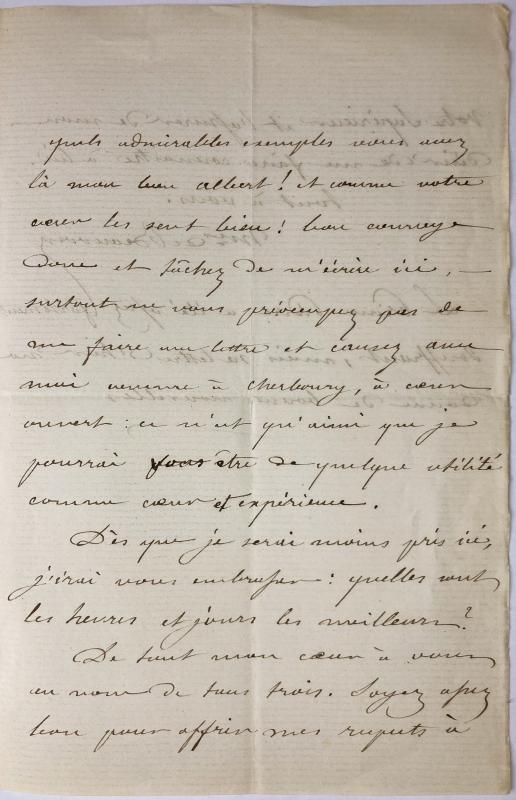 quels admirables exemples vous avez
là mon bon albert ! et comme votre
cœur les sent bien ! bon courage
donc et tâchez de m'écrire ici, —
surtout ne vous préoccupez pas de
me faire une lettre et causez avec
moi comme à cherbourg, à cœur
ouvert : ce n'est qu'ainsi que je
pourrai vous être de quelque utilité
comme cœur et expérience.
Dès que je serai moins pris ici,
j'irai vous embrasser : quelles sont
les heures et jours les meilleurs ?
De tout mon cœur à vous
au nom de tous trois. Soyez assez
bon pour offrir mes respects à